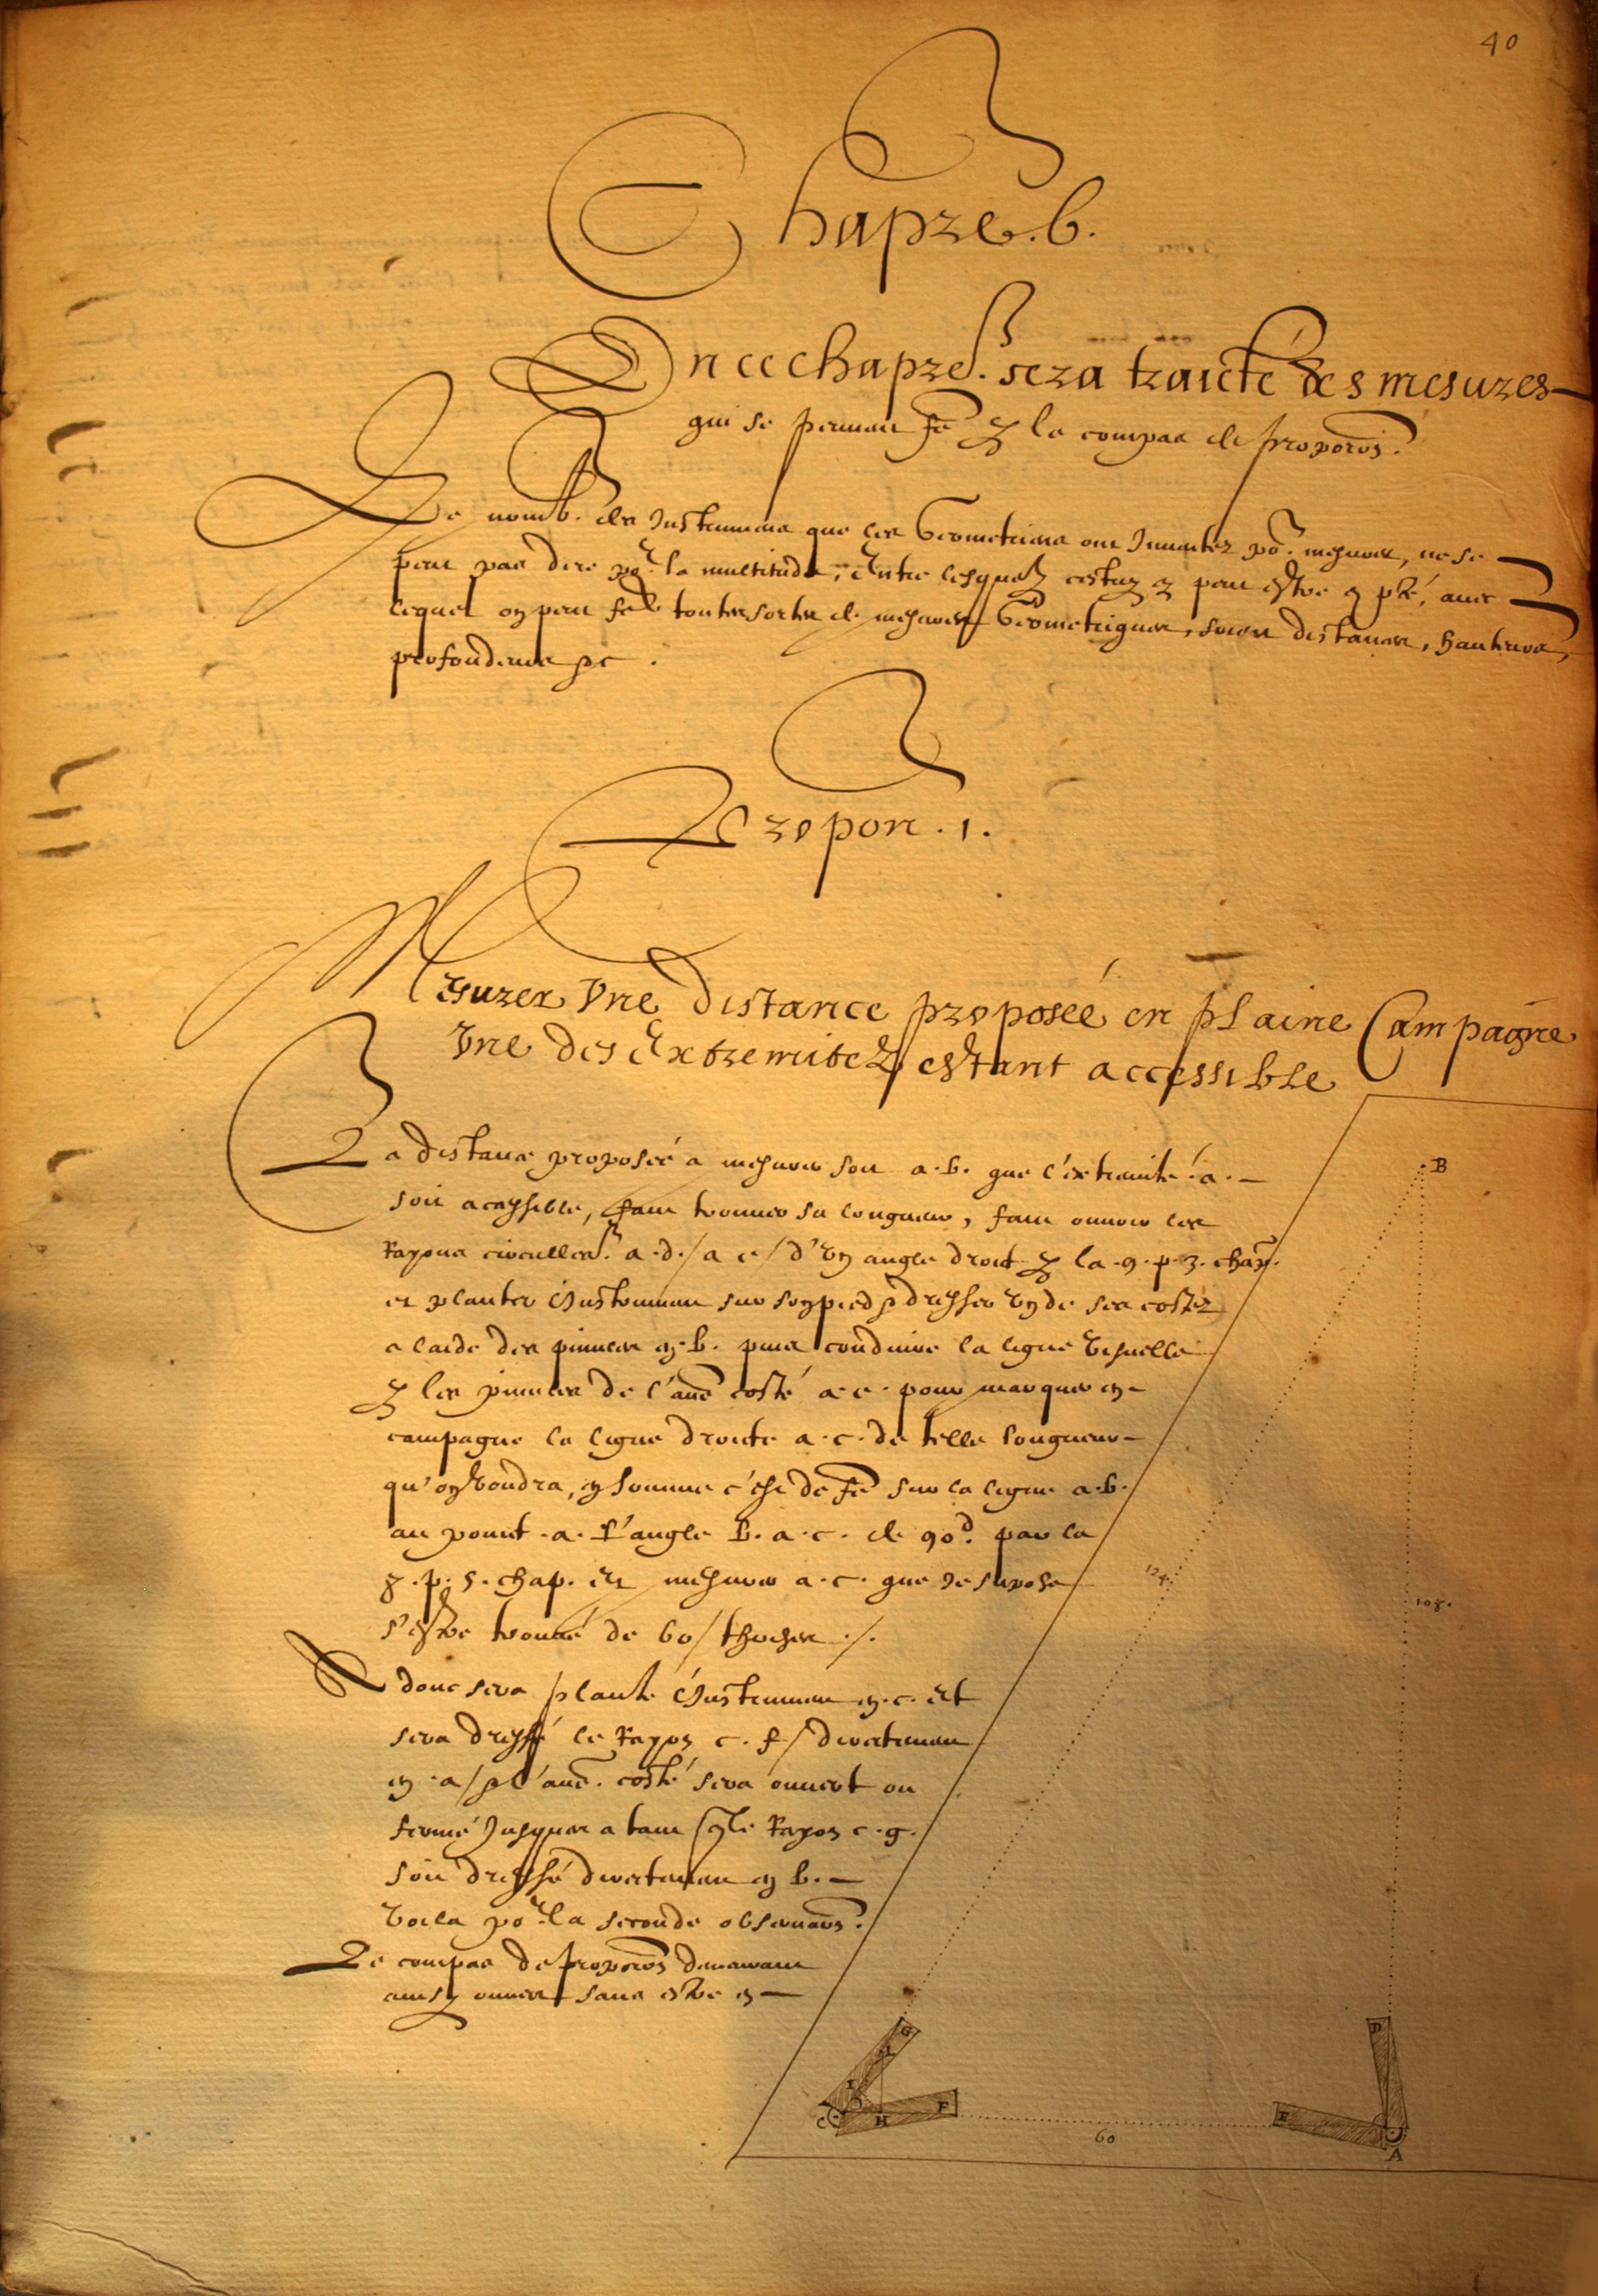 40
Chapre. 6.
En ce chapre. sera traicté des mesures
qui se peuuent fe. p le compas de proporon.
Le nomb. des Instrumens que les Geometriens ont Inuentez po.r mesurer, ne se
peut pas dire po.r la multitude, Entre lesquelz cestuy cy peut estre
lequel on peut fe. toutes sortes de mesures Geometriques, soient distances, hauteurs,
profondeurs &c.
Propon. 1.
Mesurer Vne distance proposeé en plaine Campagne
Vne des Extremitez estant accessible
La distance proposeé a mesurer soit a.b. que l'extremité .a.
soit accessible, faut trouuer sa longueur, faut ouurir les
Rayons a.d./a e/ d'vn angle droit p la .9.p.3.chap.
et planter l'Instrument sur son pied & dresser vn de ses costez
a laide des pinules en.b. puis conduire la ligne visuelle
p les pinules de l'aue. costé a.e. pour marquer en
campagne la ligne droite a.c. de telle longueur
qu'on voudra, en somme c'est de fe. sur la ligne a.b.
au point .a. l'angle b.a.c. de 90d. par la
8.p.5.chap. Et mesurer a.c. que Je supose
s'estre trouué de 60/ thoises ./.
donc sera planté l'Instrument en.c. Et
sera dressé le Rayon c.f/ directement
en .a/ & l'aue. costé sera ouuert ou
fermé Jusques a tant que le Rayon c.g.
soit dressé directement en b.
Voila po.r la seconde obseruaon.
Le compas de proporon demeurant
ainsy ouuert sans estre en
B
124.
108.
G
I
C
H
F
60
E
D
A